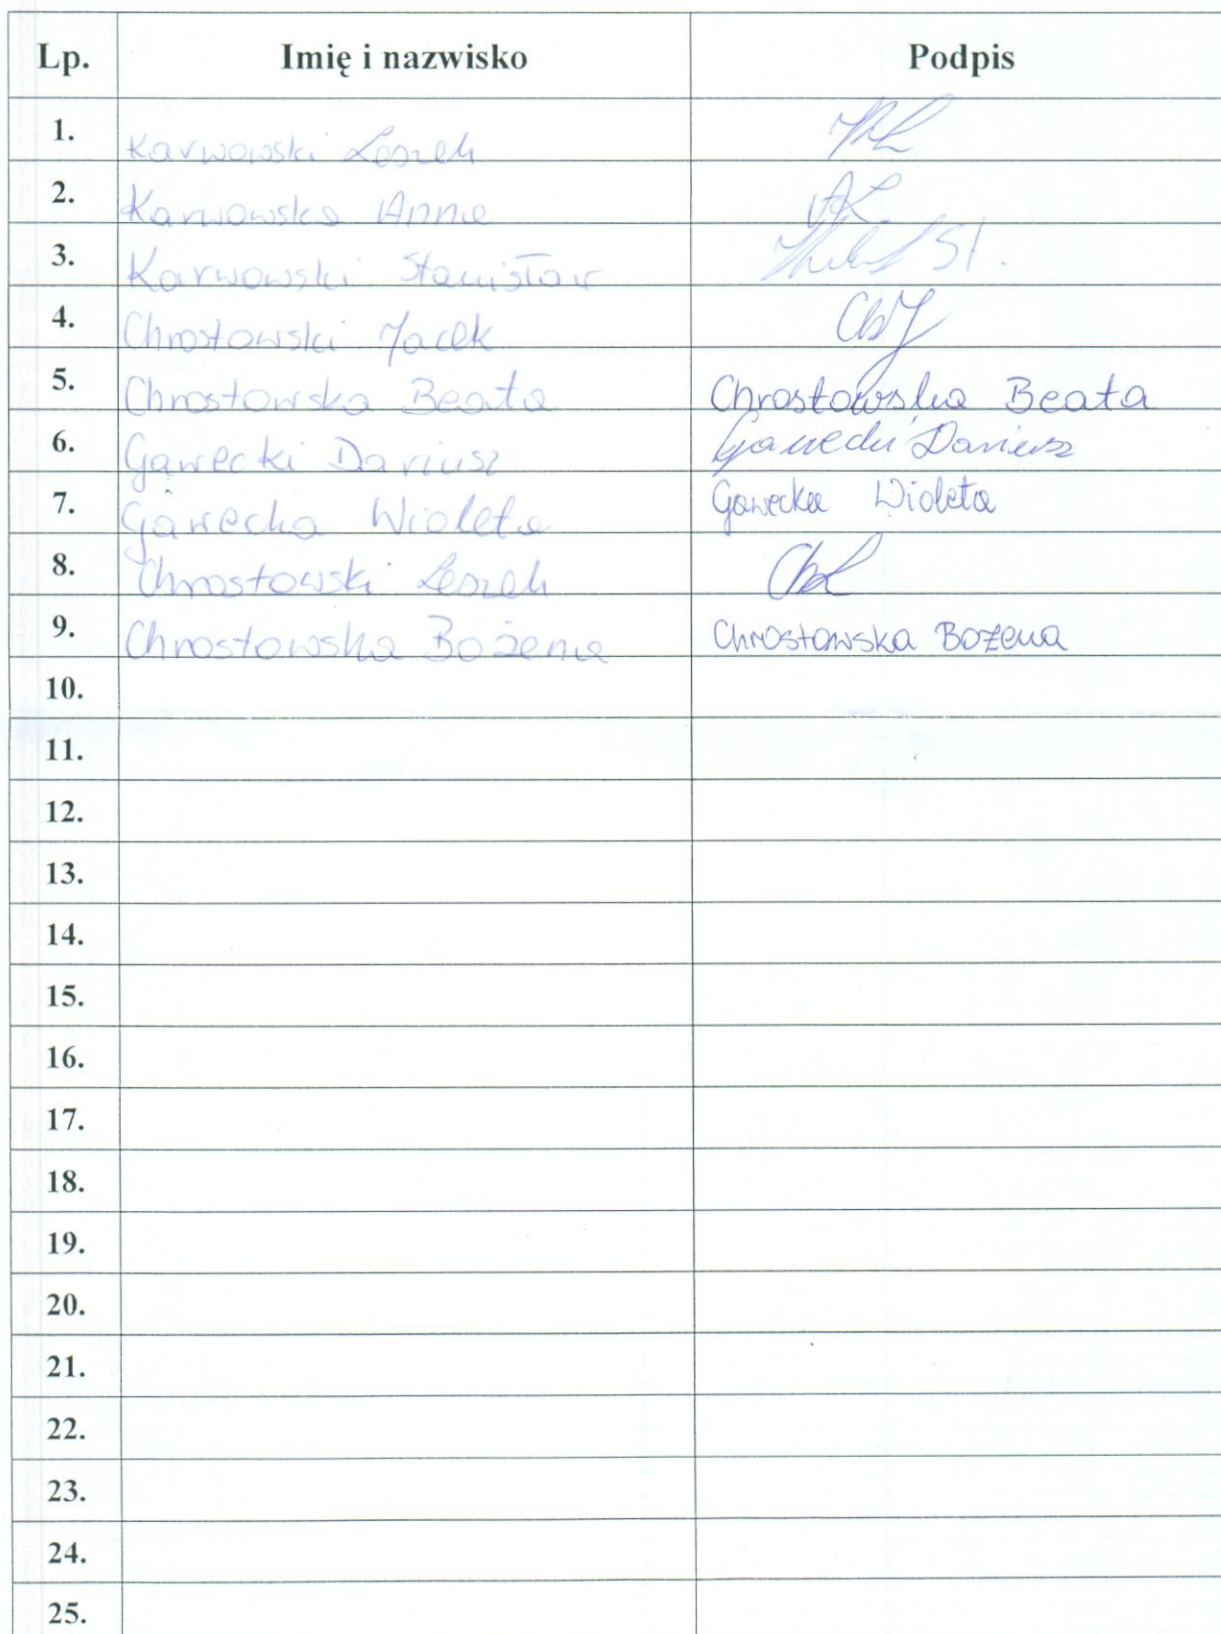 Lp. Imię i nazwisko Podpis
1. Karwowski Leszek
2. Karwowska Anna
3. Karwowski Stanisław St.
4. Chrostowski Jacek ChJ
5. Chrostowska Beata Chrostowska Beata
6. Gawecki Dariusz Gawecki Dariusz
7. Gawecka Wioleta Gawecka Wioleta
8. Chrostowski Leszek ChL
9. Chrostowska Bożena Chrostowska Bożena
10.
11.
12.
13.
14.
15.
16.
17.
18.
19.
20.
21.
22.
23.
24.
25.